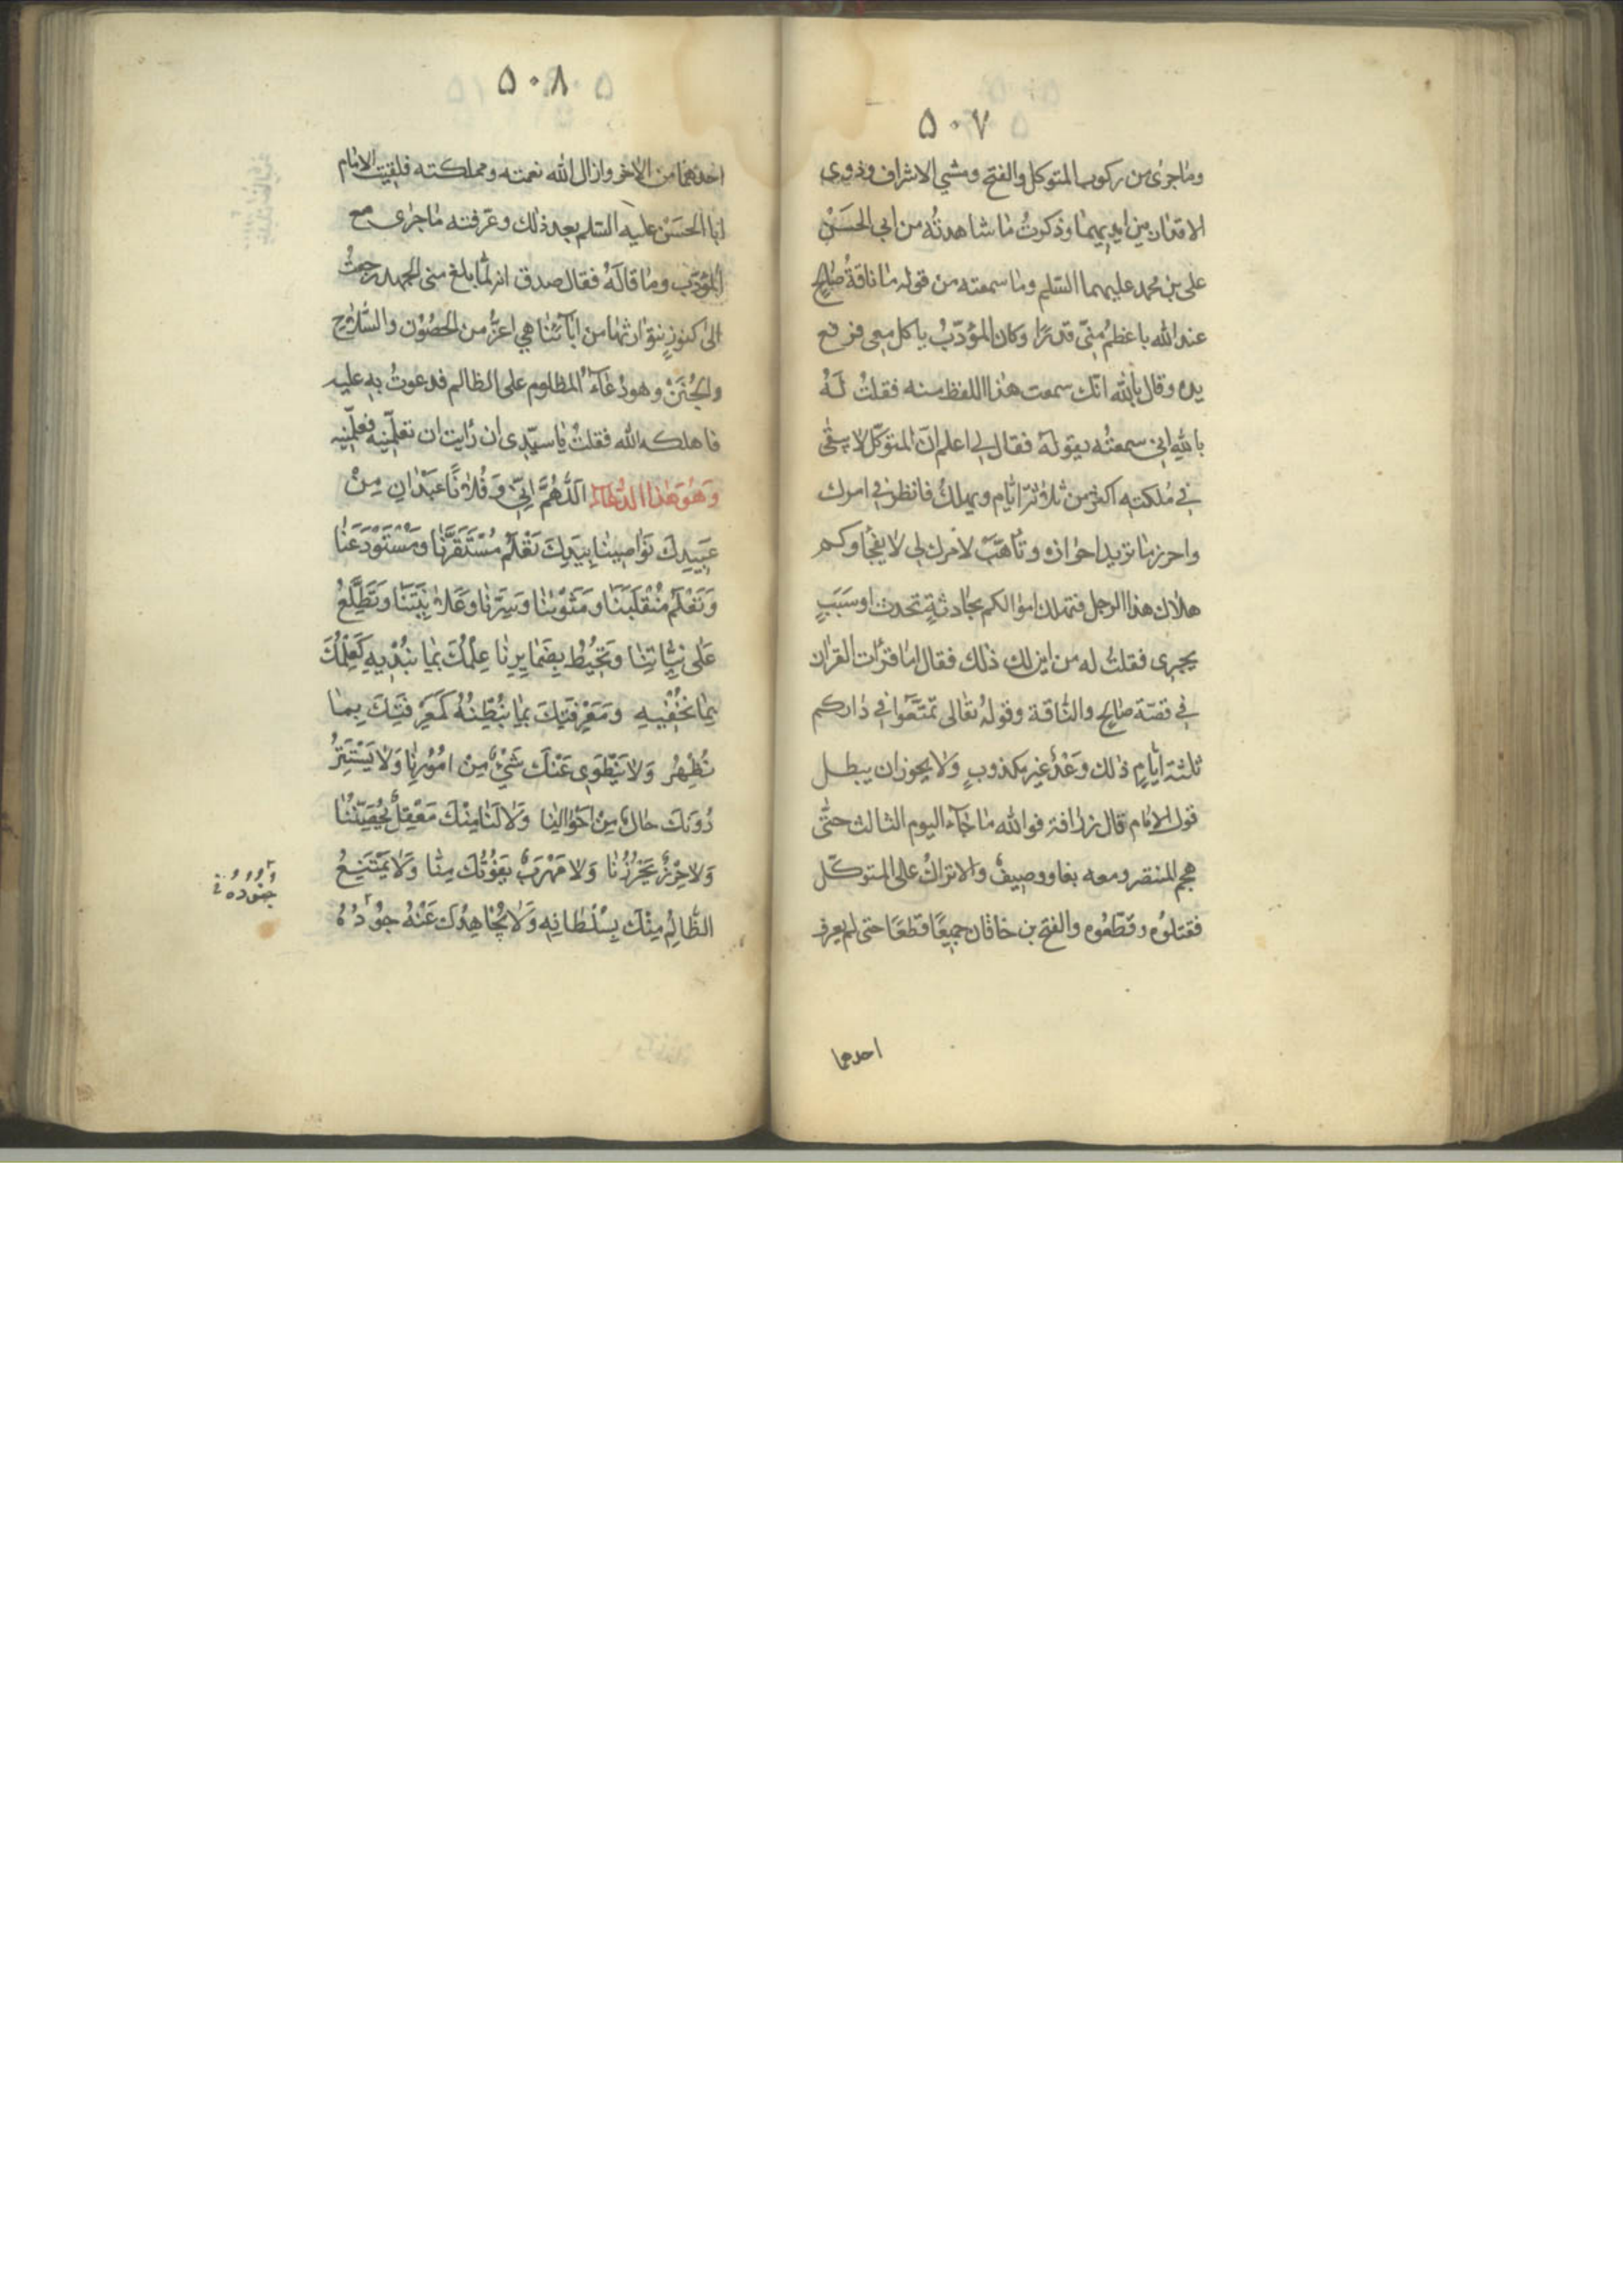 ٥٠٧
وما جرى من ركوب المتوكل والفتح ومشي الاشراف وذوي
الاقدار بين ايديهما وذكرتُ ما شاهدتُه من ابي الحسَنْ
علي بن محمد عليهما السّلم وما سمعته من قوله ما ناقةُ صالح
عند الله باعظم منّي قدرًا وكان المؤدّبُ ياكل معي فرفع
يده وقال بالله انّك سمعت هذا اللفظ منه فقلتُ لَهُ
بالله انى سمعتُه يقوله فقال لي اعلم انّ المتوكّل لا يبقى
في مملكته اكثر من ثلاثة ايّام ويهلكُ فانظر في امرك
واحرز ما تريد احرازه وتأهّبْ لامرك لي لا يفجأوكم
هلاك هذا الرجل فتهلك اموالكم بحادثةٍ تحدث او سَبَبٍ
يجرى فقلتُ له من اين لك ذلك فقال اما قرأت القرآن
في قصّة صالح والنّاقة وقولهُ تعالى تمتّعوا في داركم
ثلثة أيّامٍ ذلك وَعْدٌ غير مكذوبٍ ولا يجوز ان يبطل
قول الامام قال زرافة فوالله ما جآء اليوم الثالث حتّى
هجم المنتصر ومعه بغا ووصيفٌ والاتراكُ على المتوكّل
فقتلوُه وقطّعُوه والفتح بن خاقان جميعًا قطعًا حتى لم يعرف
احدهما
٥٠٨
احدهما من الآخر وازال الله نعمته ومملكته فلقيت الامام
ابا الحسَنْ عليه السّلم بعد ذلك وعرّفته ما جرى مع
المؤدّب وما قالَهُ فقال صدق انه لمّا بلغ منى الجهد رجعتُ
الى كنوزٍ نتوارثها من ابآئنا هي اعزُّ من الحصُوْن والسّلاح
والجُنَنْ وهو دُعآءُ المظلوم على الظالم فدعوتُ به عليه
فاهلكه الله فقلتُ يا سيّدى ان رأيت ان تعلّمنيه فعلّمنيه
وَهُوَ هٰذا الدُّعآء اَللّهُمَّ اِنّي وَفُلانًا عَبْدانِ مِنْ
عَبيدِكَ نَواصينا بِيَدِكَ تَعْلَمُ مُسْتَقَرَّنا ومُسْتَوْدَعَنا
وَتَعْلَمُ مُنْقَلَبَنا ومَثْوٰينا وَسِرَّنا وعَلانِيَتَنا وتَطَّلِعُ
عَلى نِيّاتِنا وَتُحيُطُ بِضَمايِرِنا عِلْمُكَ بِما نُبْديهِ كَعِلْمِكَ
بِما نُخْفيهِ وَمَعْرِفَتِكَ بِما نُبْطِنُهُ كَمَعْرِفَتِكَ بِما
نُظْهِرُ وَلا يَنْطَوي عَنْكَ شَيْءٌ مِنْ اُمُوْرِنا وَلا يَسْتَتِرُ
دُونَكَ حالٌ مِنْ اَحْوالِنا وَلا لَنا مِنْكَ مَعْقِلٌ يُحْصِنُنا
وَلا حِرْزٌ يَحْرُزُنا وَلا مَهْرَبٌ يَفُوْتُكَ مِنّا وَلا يَمْتَنِعُ
الظّالِمُ مِنْكَ بِسُلْطانِهِ وَلا يُجاهِدُكَ عَنْهُ جوُ دُهُ
جنوده